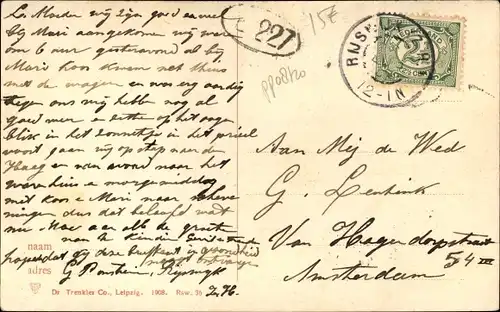 wij zijn goed en wel
bij Marie aangekomen wij waren
om 6 uur gisteravond al bij
Marie Koos kwam net thuis
met de wagen en was erg aardig
tegen ons wij hebben nog al
goed weer en zitten op het oogen
blik in het zonnetje in het prieel
voort gaan wij op stap naar den
Haag en van avond naar het
warenhuis en morgenmiddag
met Koos en Marie naar scheve
ningen dus dat beloofd wat
nu Moe aan alle de groeten
van de kinderen
hopende dat gij deze briefkaart in gezondheid
moogt ontvangen
G Rijswijk
naam
adres
Dr Trenkler Co., Leipzig. 1908. Rsw. 26
227
15€
PP08120
RIJSWIJK
12-1N
Aan Mej de Wed
G. Lentink
Van Hogendorpstraat
54 III
Amsterdam